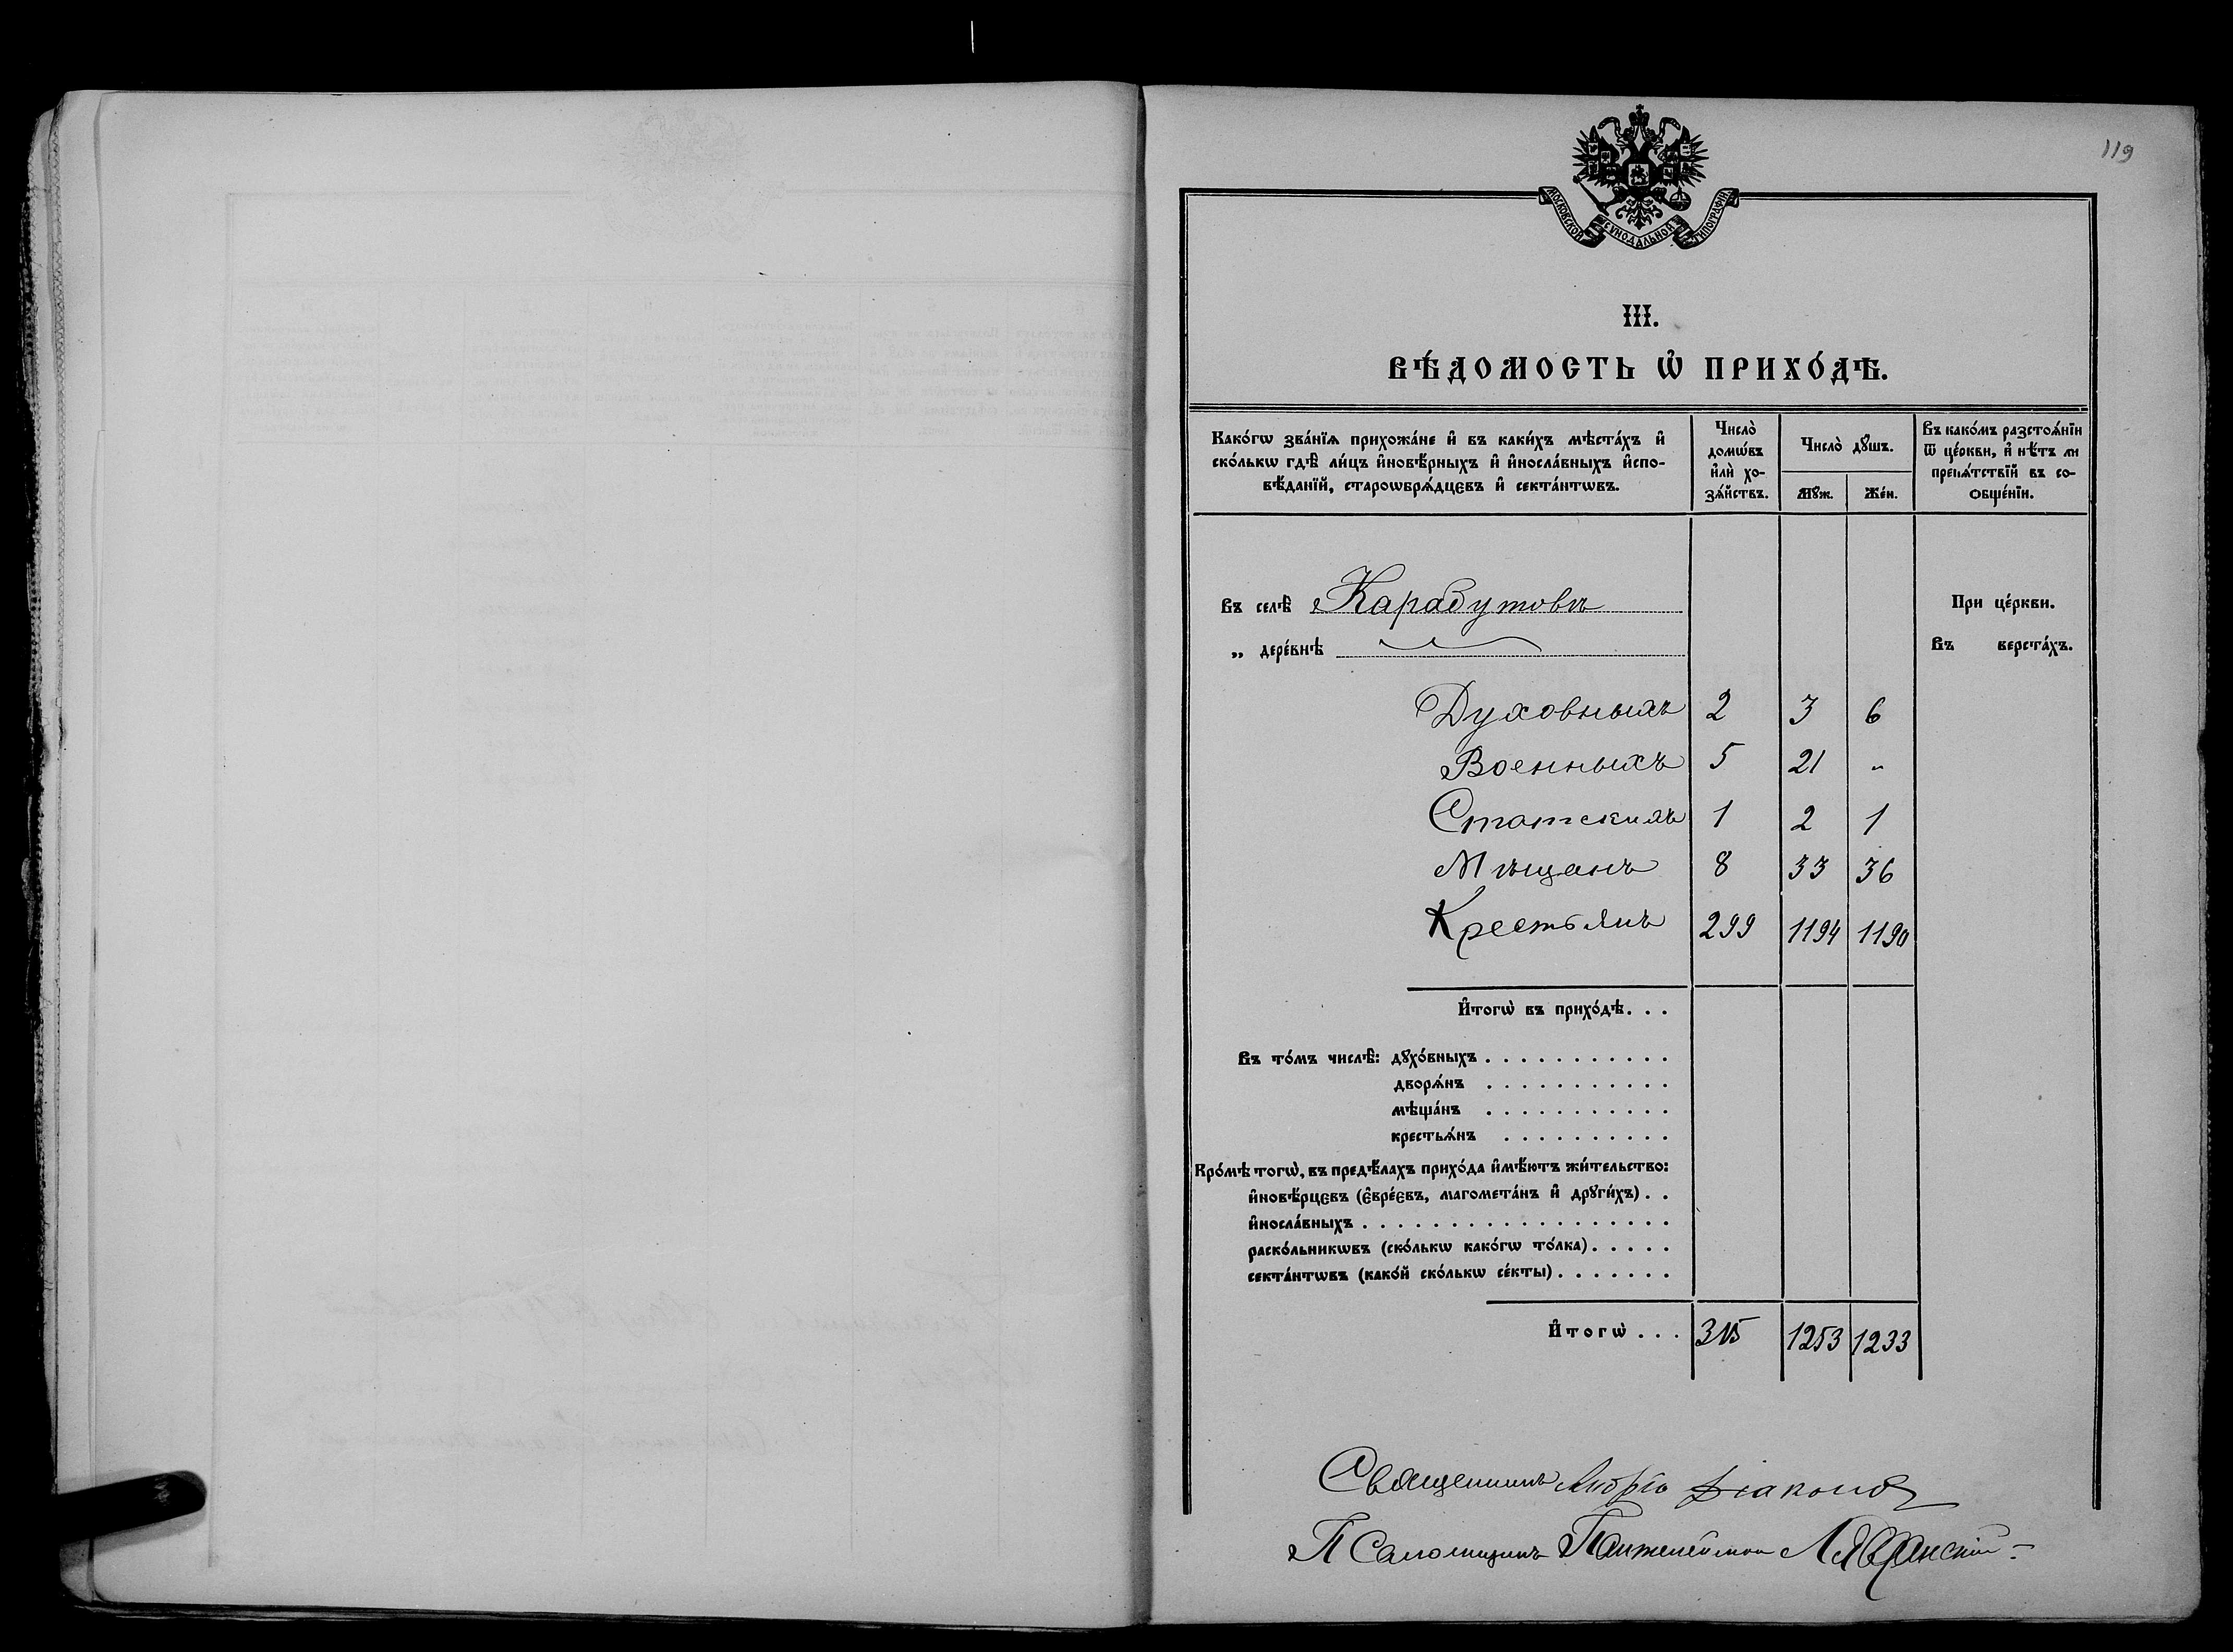 119
МОСКОВСКОЙ СУНОДАЛЬНОЙ ТИПОГРАФІИ
III.
ВѢ́ДОМОСТЬ Ѡ҆ ПРИХО́ДѢ.
Како́гѡ зва́нїѧ прихожа́не и҆ въ каки́хъ мѣста́хъ и҆
ско́лькѡ гдѣ̀ ли́цъ и҆новѣ́рныхъ и҆ и҆носла́вныхъ и҆спо-
вѣ́данїй, староѡбрѧ́дцєвъ и҆ секта́нтѡвъ.
Число̀ домѡ́въ и҆лѝ хо- зѧ́йствъ.
Число̀ дꙋ́шъ.
Мꙋ́ж. Же́н.
Въ како́мъ разстоѧ́нїи
ѿ це́ркви, и҆ нѣ́тъ ли
препѧ́тствїй въ со-
ѻбще́нїи.
Въ селѣ̀ Карабутовѣ При це́ркви.
„ дере́внѣ Въ верста́хъ.
Духовныхъ 2 3 6
Военныхъ 5 21 „
Статскихъ 1 2 1
Мѣщанъ 8 33 36
Крестьянъ 299 1194 1190
И҆тогѡ̀ въ прихо́дѣ. . .
Въ то́мъ числѣ̀: дꙋхо́вныхъ . . . . . . . . . . .
дворѧ́нъ . . . . . . . . . . .
мѣща́нъ . . . . . . . . . . .
крестьѧ́нъ . . . . . . . . . .
Кро́мѣ тогѡ̀, въ предѣ́лахъ прихо́да и҆мѣ́ютъ жи́тельство:
и҆новѣ́рцєвъ (є҆вре́євъ, магомета́нъ и҆ дрꙋги́хъ) . .
и҆носла́вныхъ . . . . . . . . . . . . . . . . . .
раско́льникѡвъ (ско́лькѡ како́гѡ то́лка) . . . . .
секта́нтѡвъ (како́й ско́лькѡ се́кты) . . . . . . .
И҆тогѡ̀ . . . 315 1253 1233
Священникъ Діаконов
Псаломщикъ Пантелеймон